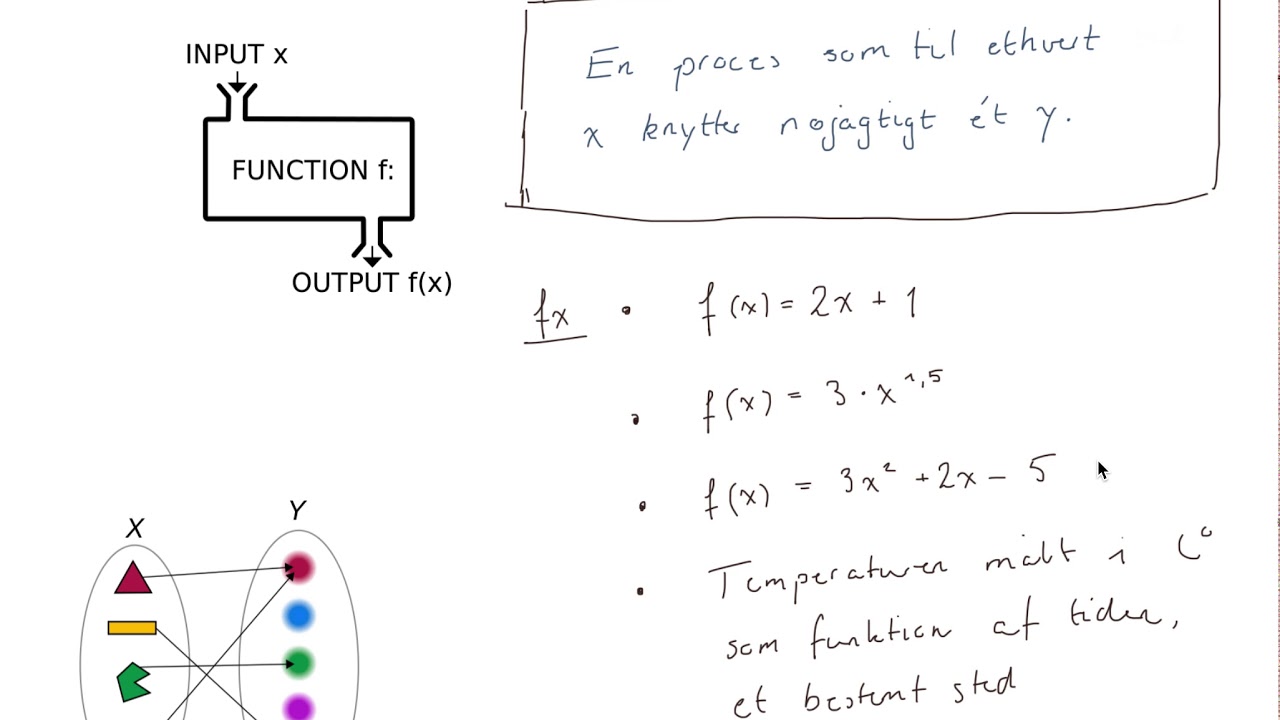 INPUT x
FUNCTION f:
OUTPUT f(x)
En proces som til ethvert
x knytter nøjagtigt ét y.
fx • f(x) = 2x + 1
• f(x) = 3 · x^1,5
• f(x) = 3x² + 2x − 5
• Temperaturen målt i C°
som funktion af tiden,
et bestemt sted
X
Y